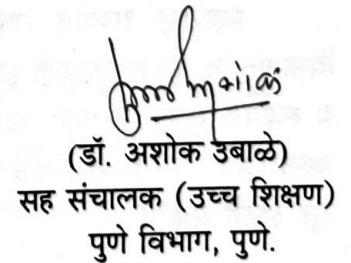 (डॉ. अशोक उबाळे)
सह संचालक (उच्च शिक्षण)
पुणे विभाग, पुणे.